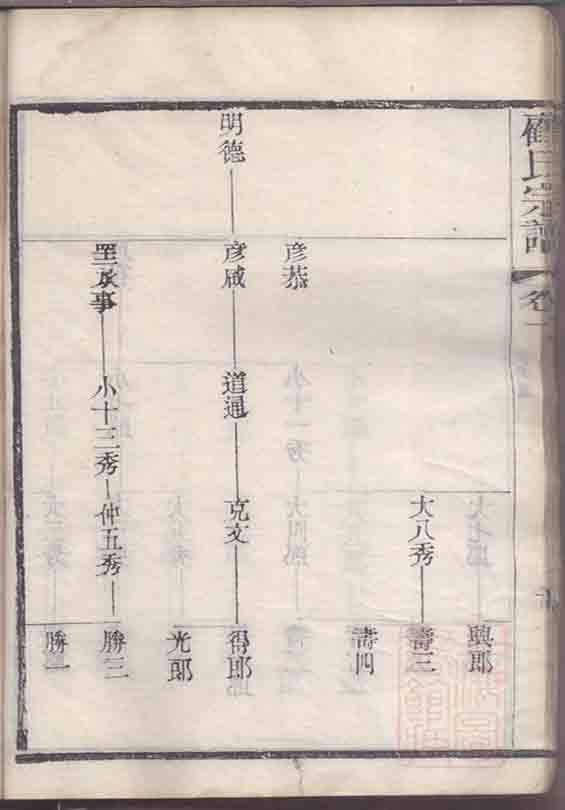 氏宗譜 卷一
大七郎 興郎
大八秀 壽三
壽四
彥恭
明德 彥咸 道通 克文 得郎
光郎
承事 小十三秀 仲五秀 勝三
勝一